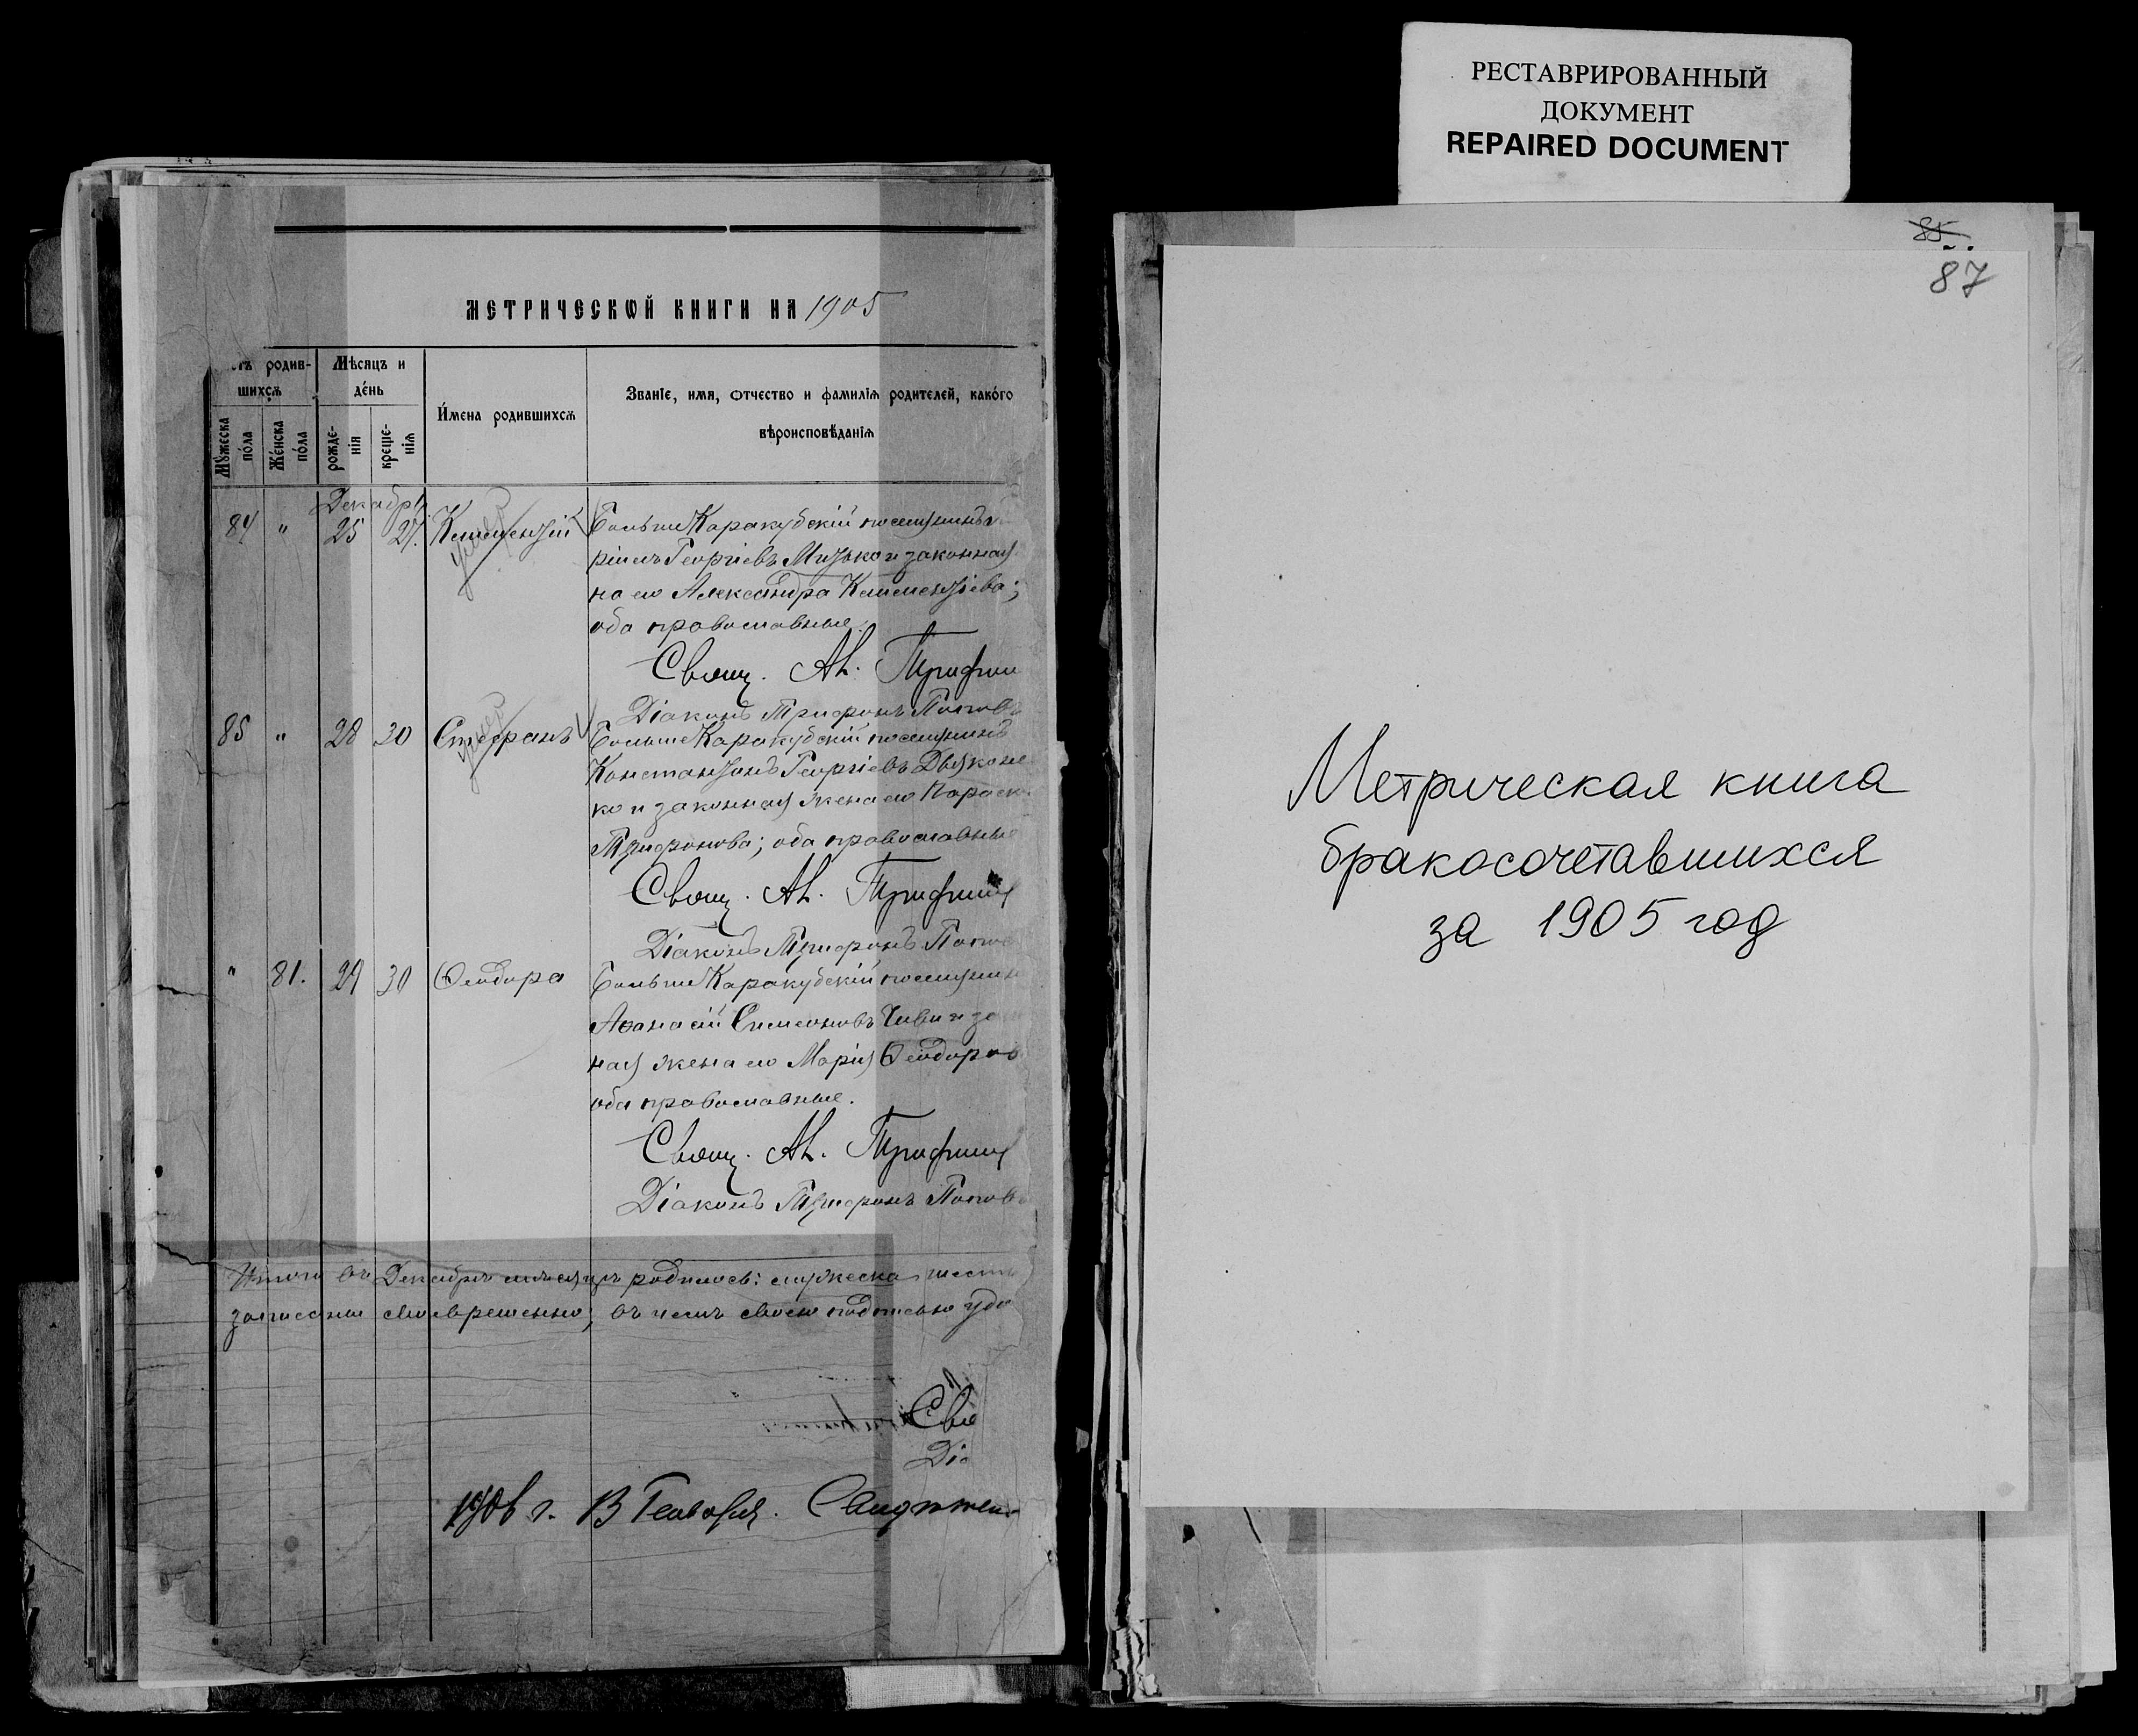 МЕТРИЧЕСКѠЙ КНИГИ НА 1905
родив-
шихсѧ
Мꙋ́жеска
по́ла
Же́нска
по́ла
Мѣсяцъ и
де́нь
рожде-
нїя
креще-
нїѧ
И́мена родившихсѧ
Званїе, имя, ѻтчество и фамилїѧ родителей, како́го
вѣроисповѣ́данїѧ
Декабрь
84 " 25 27. Климентій Больше Каракубскій поселянинъ
Георгіевъ и законная
на его Александра Климентіева;
оба православные.
Свящ. Ал. Трифил
Діаконъ Трифонъ Попов
85 " 28 30 Стефанъ Больше Каракубскій поселянинъ
Константинъ Георгіевъ
ко и законная жена его Параск
Трифонова; оба православные
Свящ. Ал. Трифил
Діаконъ Трифонъ Попов
" 81. 29 30 Ѳеодора Больше Каракубскій поселянин
Аѳанасій Симеоновъ и за
ная жена его Марія Ѳеодоров
оба православные.
Свящ. Ал. Трифил
Діаконъ Трифонъ Попов
Итого въ Декабрѣ мѣсяцѣ родилось: мужеска шесть
записаны своевременно, въ чемъ своею подписью удо
Свя
Ді
1906 г.
РЕСТАВРИРОВАННЫЙ
ДОКУМЕНТ
REPAIRED DOCUMENT
85
87
Метрическая книга
бракосочетавшихся
за 1905 год